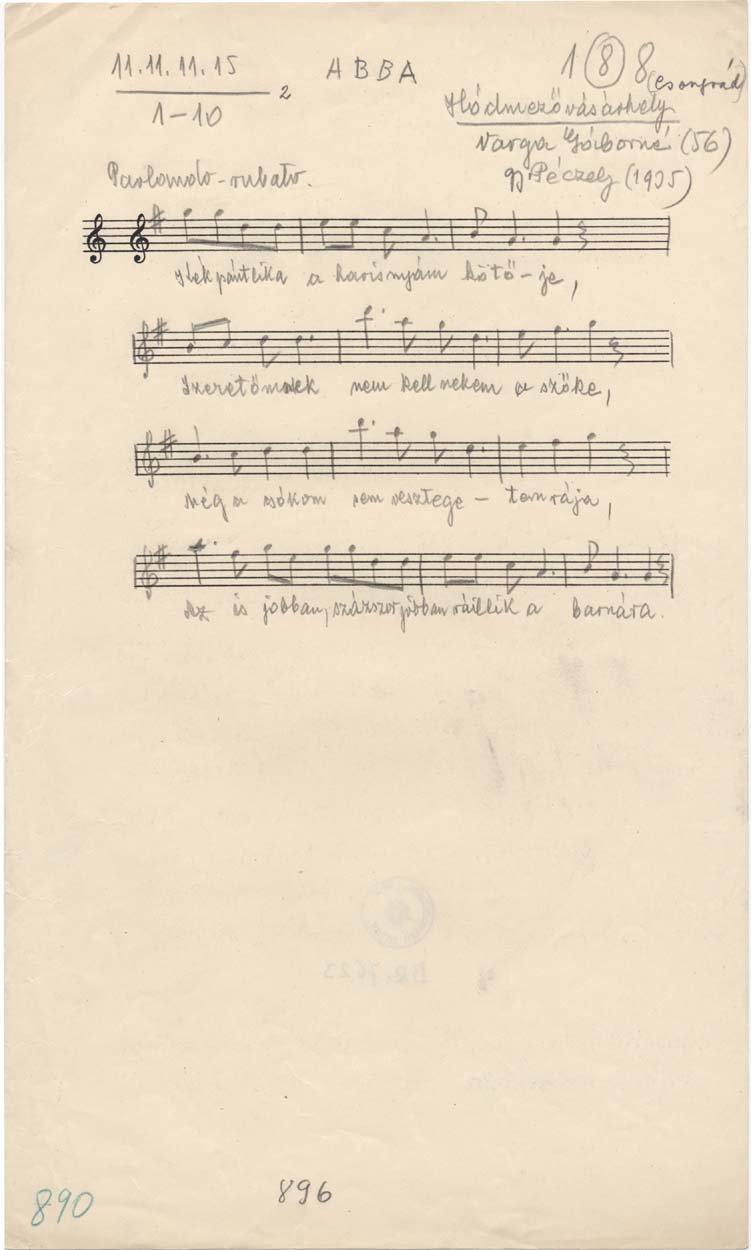 11. 11. 11. 15
1-10 2
ABBA
1 8 8
(Csongrád)
Hódmezővásárhely
Varga Gáborné (56)
Péczely (1935)
Parlando-rubato.
Kék pántlika a harisnyám kötő-je,
Szeretőmnek nem kell nekem a szőke,
Még a csókom sem vesztege-tem rája,
Az is jobban, százszor jobban ráillik a barnára.
890
896